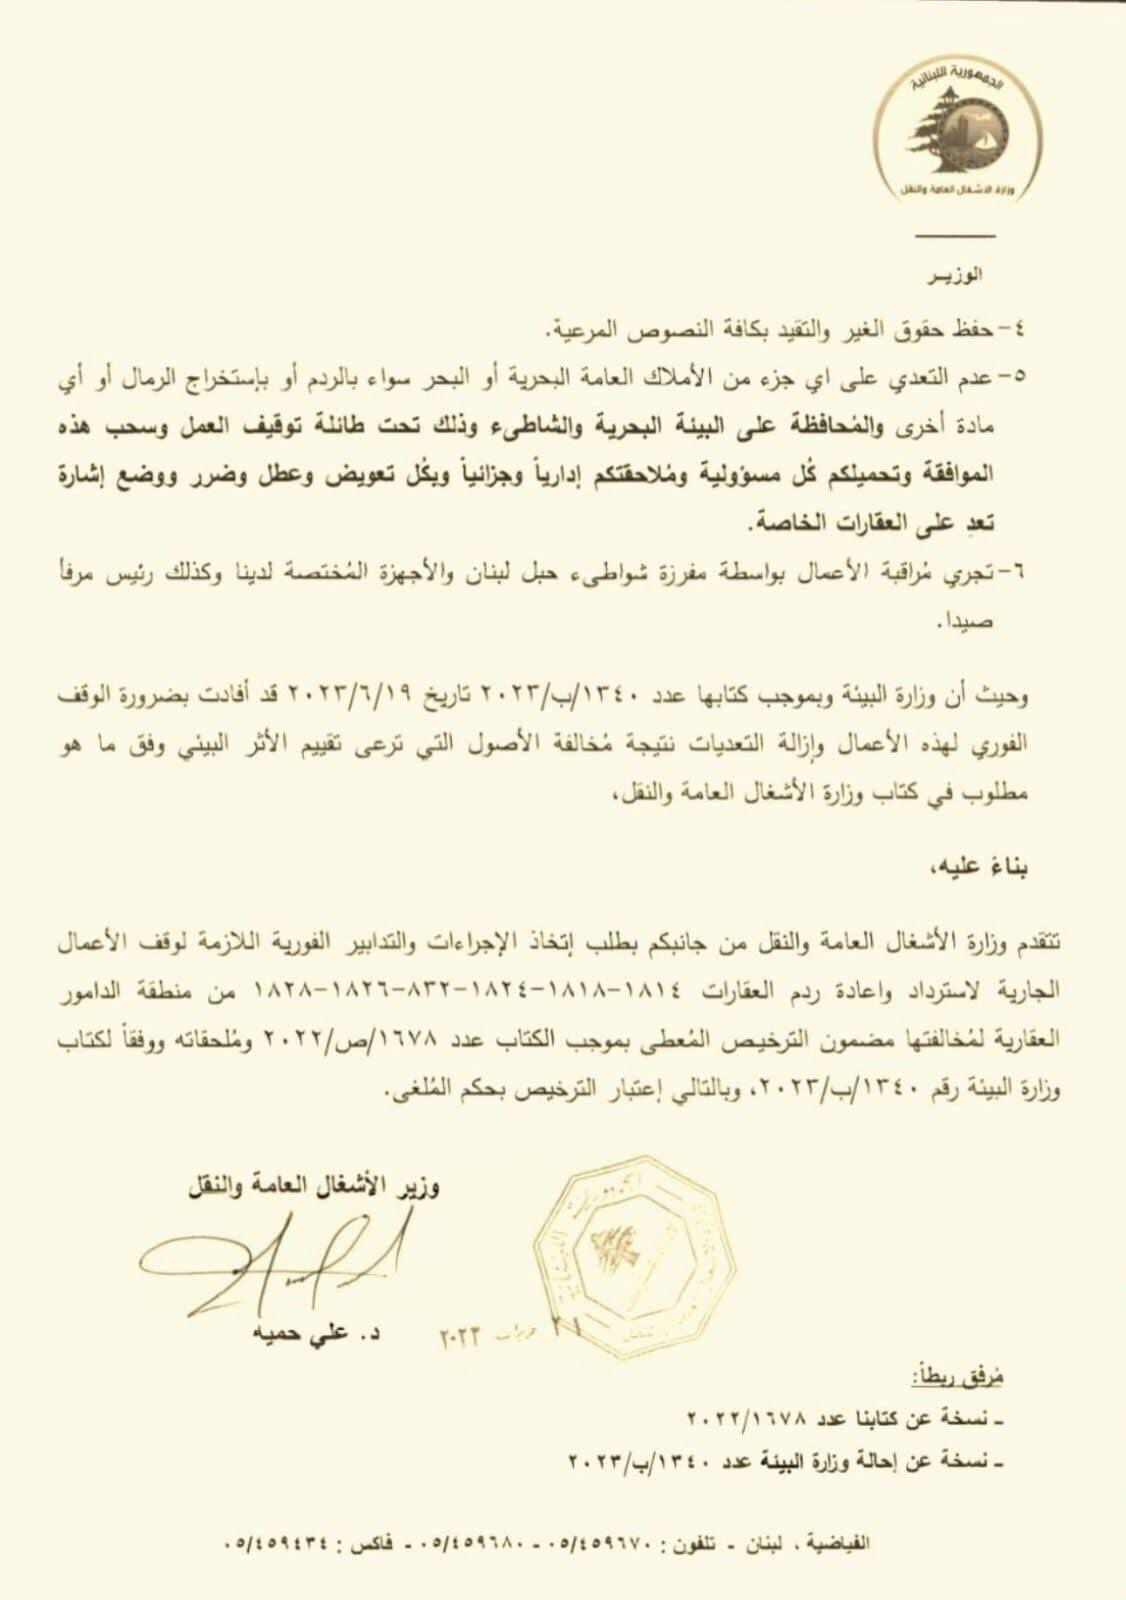 الجمهورية اللبنانية
وزارة الاشغال العامة والنقل
الوزيـر
٤- حفظ حقوق الغير والتقيد بكافة النصوص المرعية.
٥- عدم التعدي على اي جزء من الأملاك العامة البحرية أو البحر سواء بالردم أو بإستخراج الرمال أو أي
مادة أخرى والمُحافظة على البيئة البحرية والشاطىء وذلك تحت طائلة توقيف العمل وسحب هذه
الموافقة وتحميلكم كُل مسؤولية ومُلاحقتكم إدارياً وجزائياً وبكُل تعويض وعطل وضرر ووضع إشارة
تعدِ على العقارات الخاصة.
٦- تجري مُراقبة الأعمال بواسطة مفرزة شواطىء جبل لبنان والأجهزة المُختصة لدينا وكذلك رئيس مرفأ
صيدا.
وحيث أن وزارة البيئة وبموجب كتابها عدد ١٣٤٠/ب/٢٠٢٣ تاريخ ٢٠٢٣/٦/١٩ قد أفادت بضرورة الوقف
الفوري لهذه الأعمال وإزالة التعديات نتيجة مُخالفة الأصول التي ترعى تقييم الأثر البيئي وفق ما هو
مطلوب في كتاب وزارة الأشغال العامة والنقل،
بناءً عليه،
تتقدم وزارة الأشغال العامة والنقل من جانبكم بطلب إتخاذ الإجراءات والتدابير الفورية اللازمة لوقف الأعمال
الجارية لاسترداد واعادة ردم العقارات ١٨١٤-١٨١٨-١٨٢٤-٨٣٢-١٨٢٦-١٨٢٨ من منطقة الدامور
العقارية لمُخالفتها مضمون الترخيص المُعطى بموجب الكتاب عدد ١٦٧٨/ص/٢٠٢٢ ومُلحقاته ووفقاً لكتاب
وزارة البيئة رقم ١٣٤٠/ب/٢٠٢٣، وبالتالي إعتبار الترخيص بحكم المُلغى.
وزير الأشغال العامة والنقل
الجمهورية اللبنانية
د. علي حميه
٢١ حزيران ٢٠٢٣
مُرفق ربطاً:
ـ نسخة عن كتابنا عدد ٢٠٢٢/١٦٧٨
ـ نسخة عن إحالة وزارة البيئة عدد ١٣٤٠/ب/٢٠٢٣
الفياضية ، لبنان ـ تلفون : ٠٥/٤٥٩٦٧٠ - ٠٥/٤٥٩٦٨٠ ـ فاكس : ٠٥/٤٥٩٤٣٤